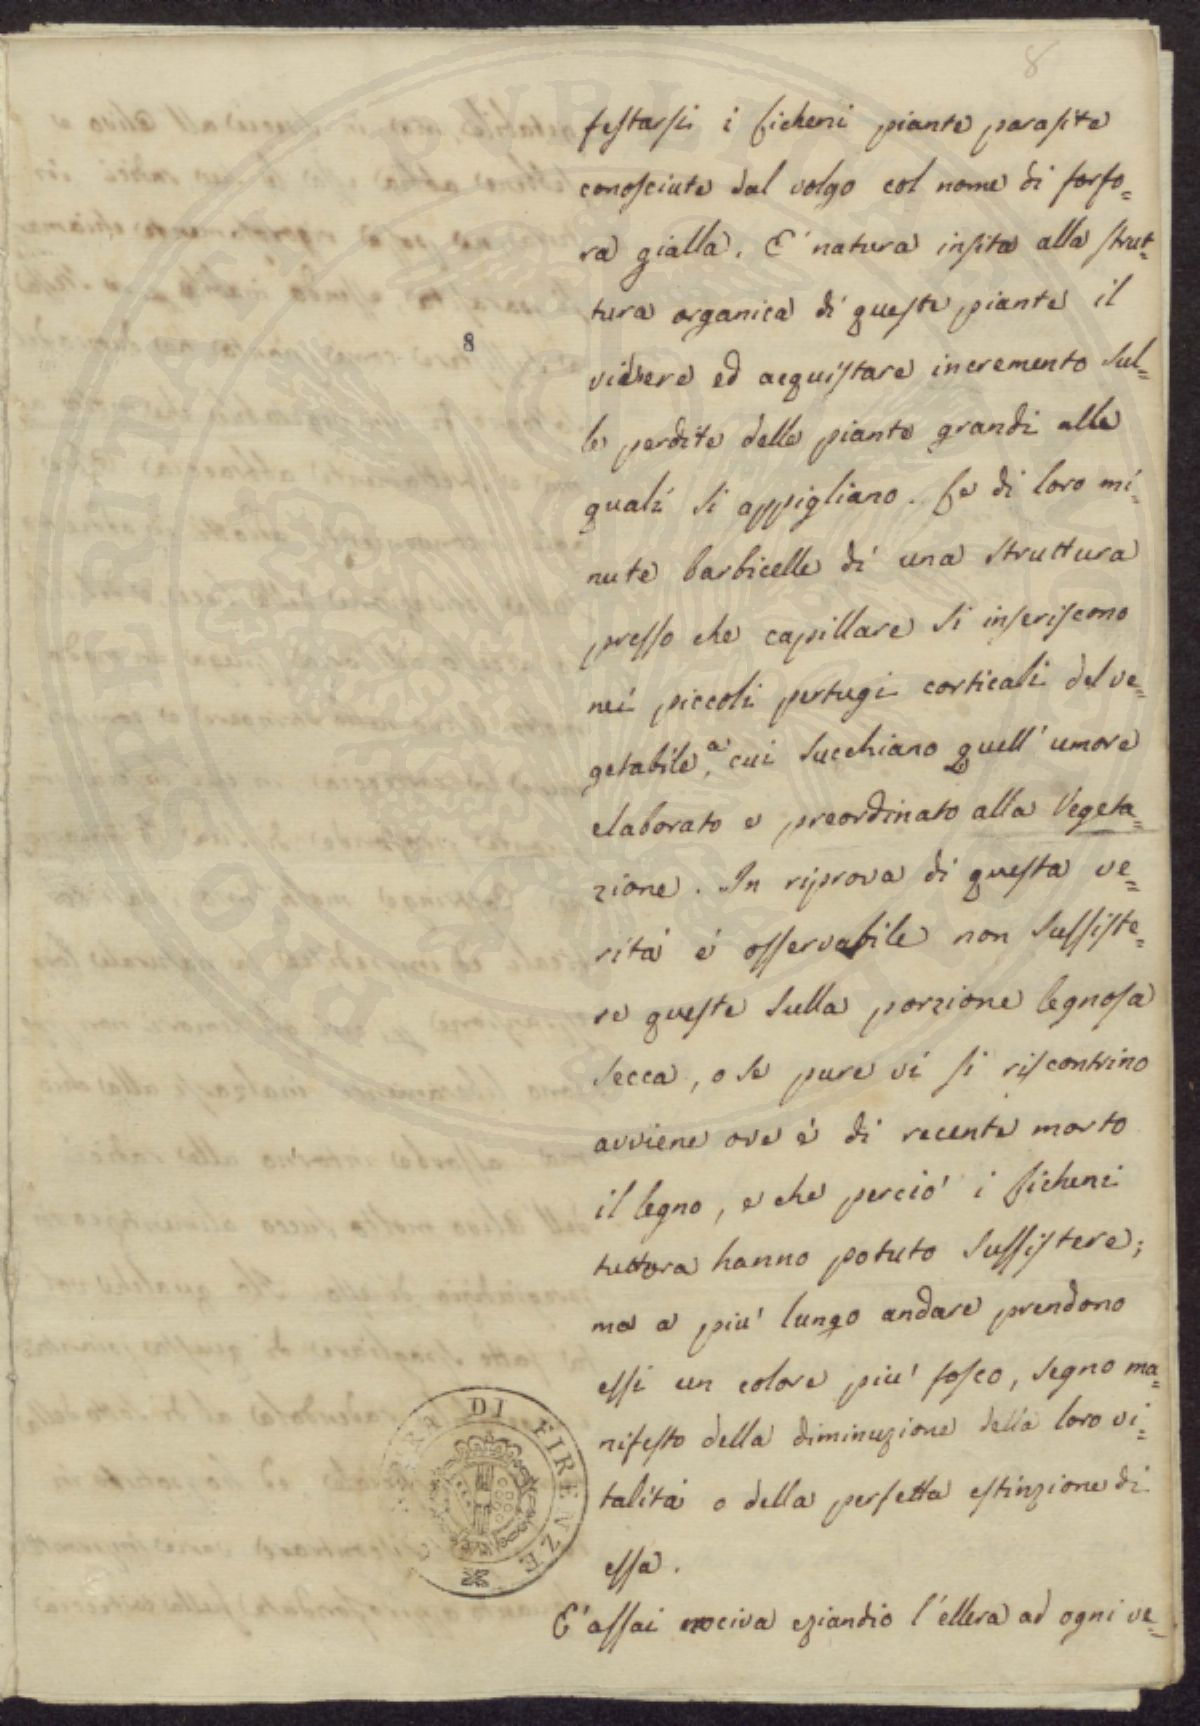 8
festarsi i Licheni piante parasite
conosciute dal volgo col nome di forfo=
ra gialla. E' natura insita alla strut=
tura organica di queste piante il
8
vivere ed acquistare incremento sul=
le perdite delle piante grandi alle
quali si appigliano. Le di loro mi=
nute barbicelle di una struttura
presso che capillare si inseriscono
nei piccoli pertugi corticali del ve=
getabile, a cui succhiano quell'umore
elaborato e preordinato alla Vegeta=
zione. In riprova di questa ve=
rità è osservabile non sussiste=
re queste sulla porzione legnosa
secca, o se pure vi si riscontrino
avviene ove è di recente morto
il legno, e che perciò i Licheni
tuttora hanno potuto sussistere;
ma a più lungo andare prendono
essi un colore più fosco, segno ma=
nifesto della diminuzione della loro vi=
talità o della perfetta estinzione di
essa.
E' assai nociva eziandio l'ellera ad ogni ve=
DI FIRENZE